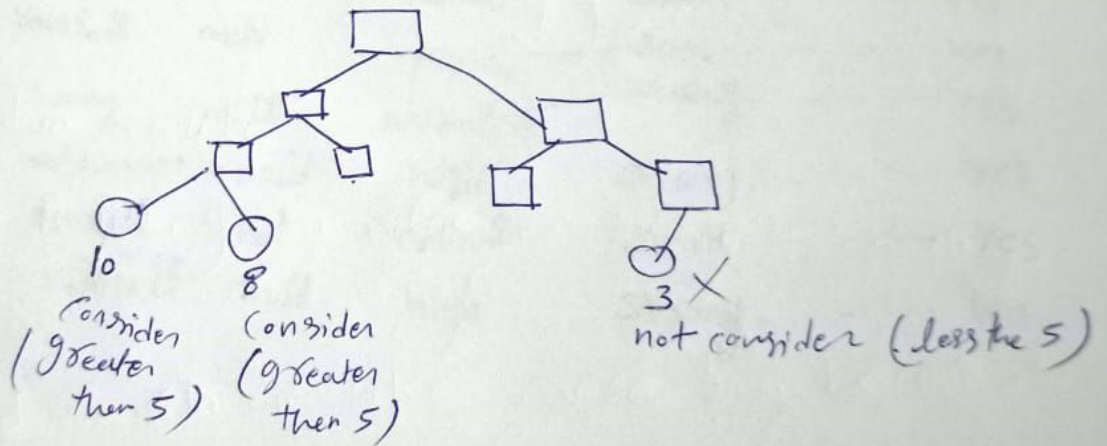 10
consider
(greater
then 5)
8
consider
(greater
then 5)
3 X
not consider (less the 5)